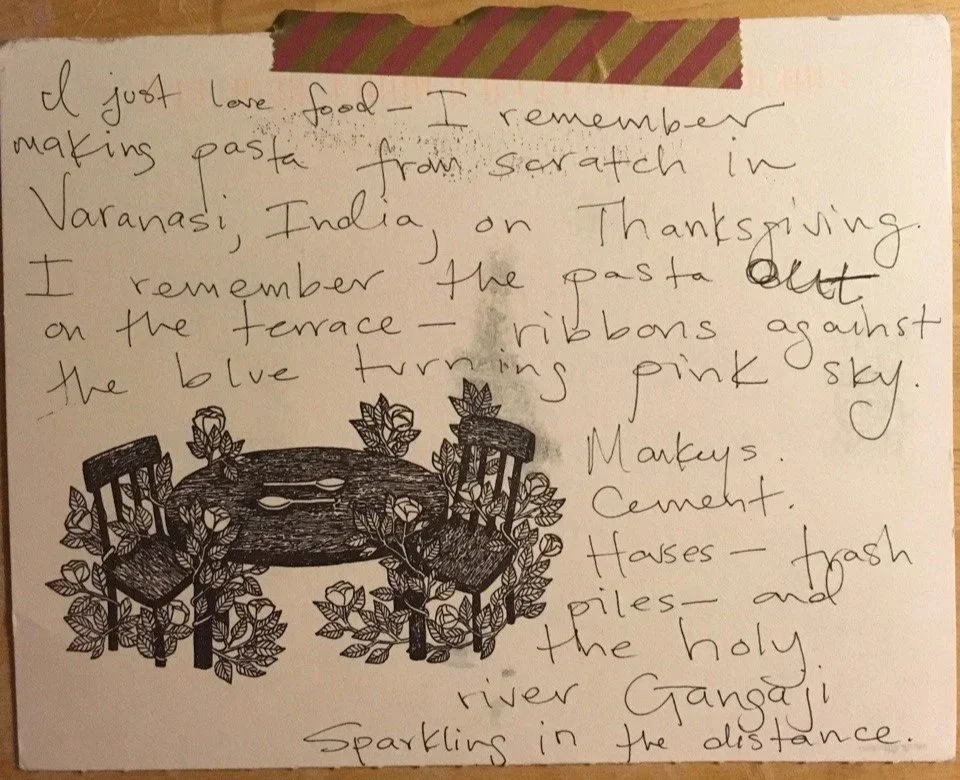 I just love food – I remember
making pasta from scratch in
Varanasi, India, on Thanksgiving.
I remember the pasta out
on the terrace – ribbons against
the blue turning pink sky.
Monkeys.
Cement.
Houses – trash
piles – and
the holy
river Gangaji
Sparkling in the distance.